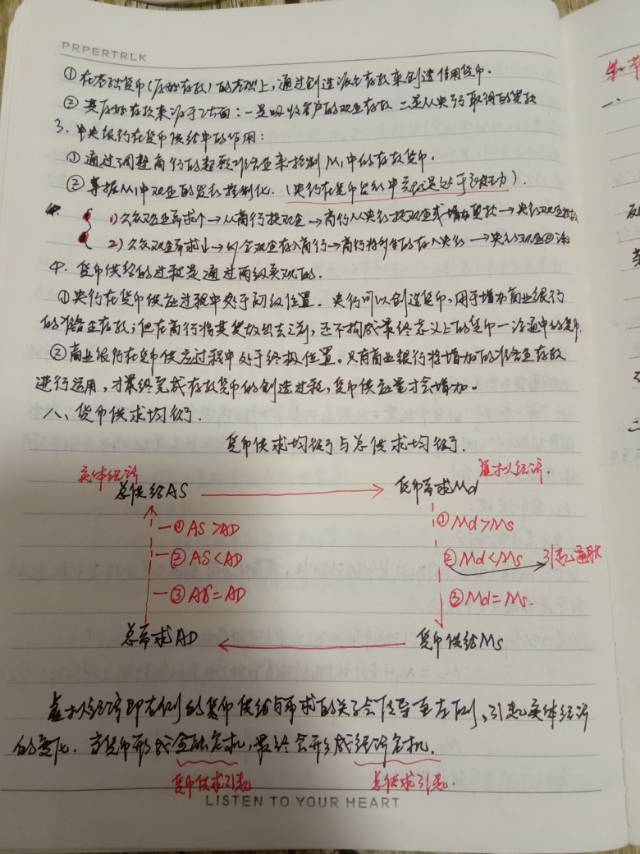 PRPERTRLK
①在基础货币(原始存款)的基础上,通过创造派生存款来创造信用货币.
②其原始存款来源于2方面:一是吸收客户的现金存款 二是从央行取得的贷款
3.中央银行在货币供给中的作用:
①通过调整商行的超额准备金来控制M₁中的存款货币.
②掌握M₁中现金的发行控制权.(央行在货币供给中永远处于主动).
1)公众现金需求个→从商行提现金→商行从央行提现金或增加贷款→央行现金
2)公众现金需求↓→将多余现金存入商行→商行将多余的存入央行→央行现金回笼
4.货币供给的过程是通过两级实现的.
①央行在货币供应过程中处于初级位置.央行可以创造货币,用于增加商业银行
的准备金存款;但在商行将其贷放出去之前,还不构成最终意义上的货币—流通中的货币.
②商业银行在货币供应过程中处于终极位置.只有商业银行将增加的准备金存款
进行运用,才最终完成存款货币的创造过程,货币供应量才会增加.
八、货币供求均衡.
货币供求均衡与总供求均衡.
实体经济 虚拟经济.
总供给AS 货币需求Md
①AS>AD ①Md>Ms
②AS<AD ②Md<Ms 引起通胀
③AS=AD ③Md=Ms.
总需求AD 货币供给Ms
虚拟经济即右侧的货币供给与需求的关系会传导至左侧,引起实体经济
的变化.当货币形成金融危机,最终会形成经济危机.
货币供求引起 总供求引起.
LISTEN TO YOUR HEART